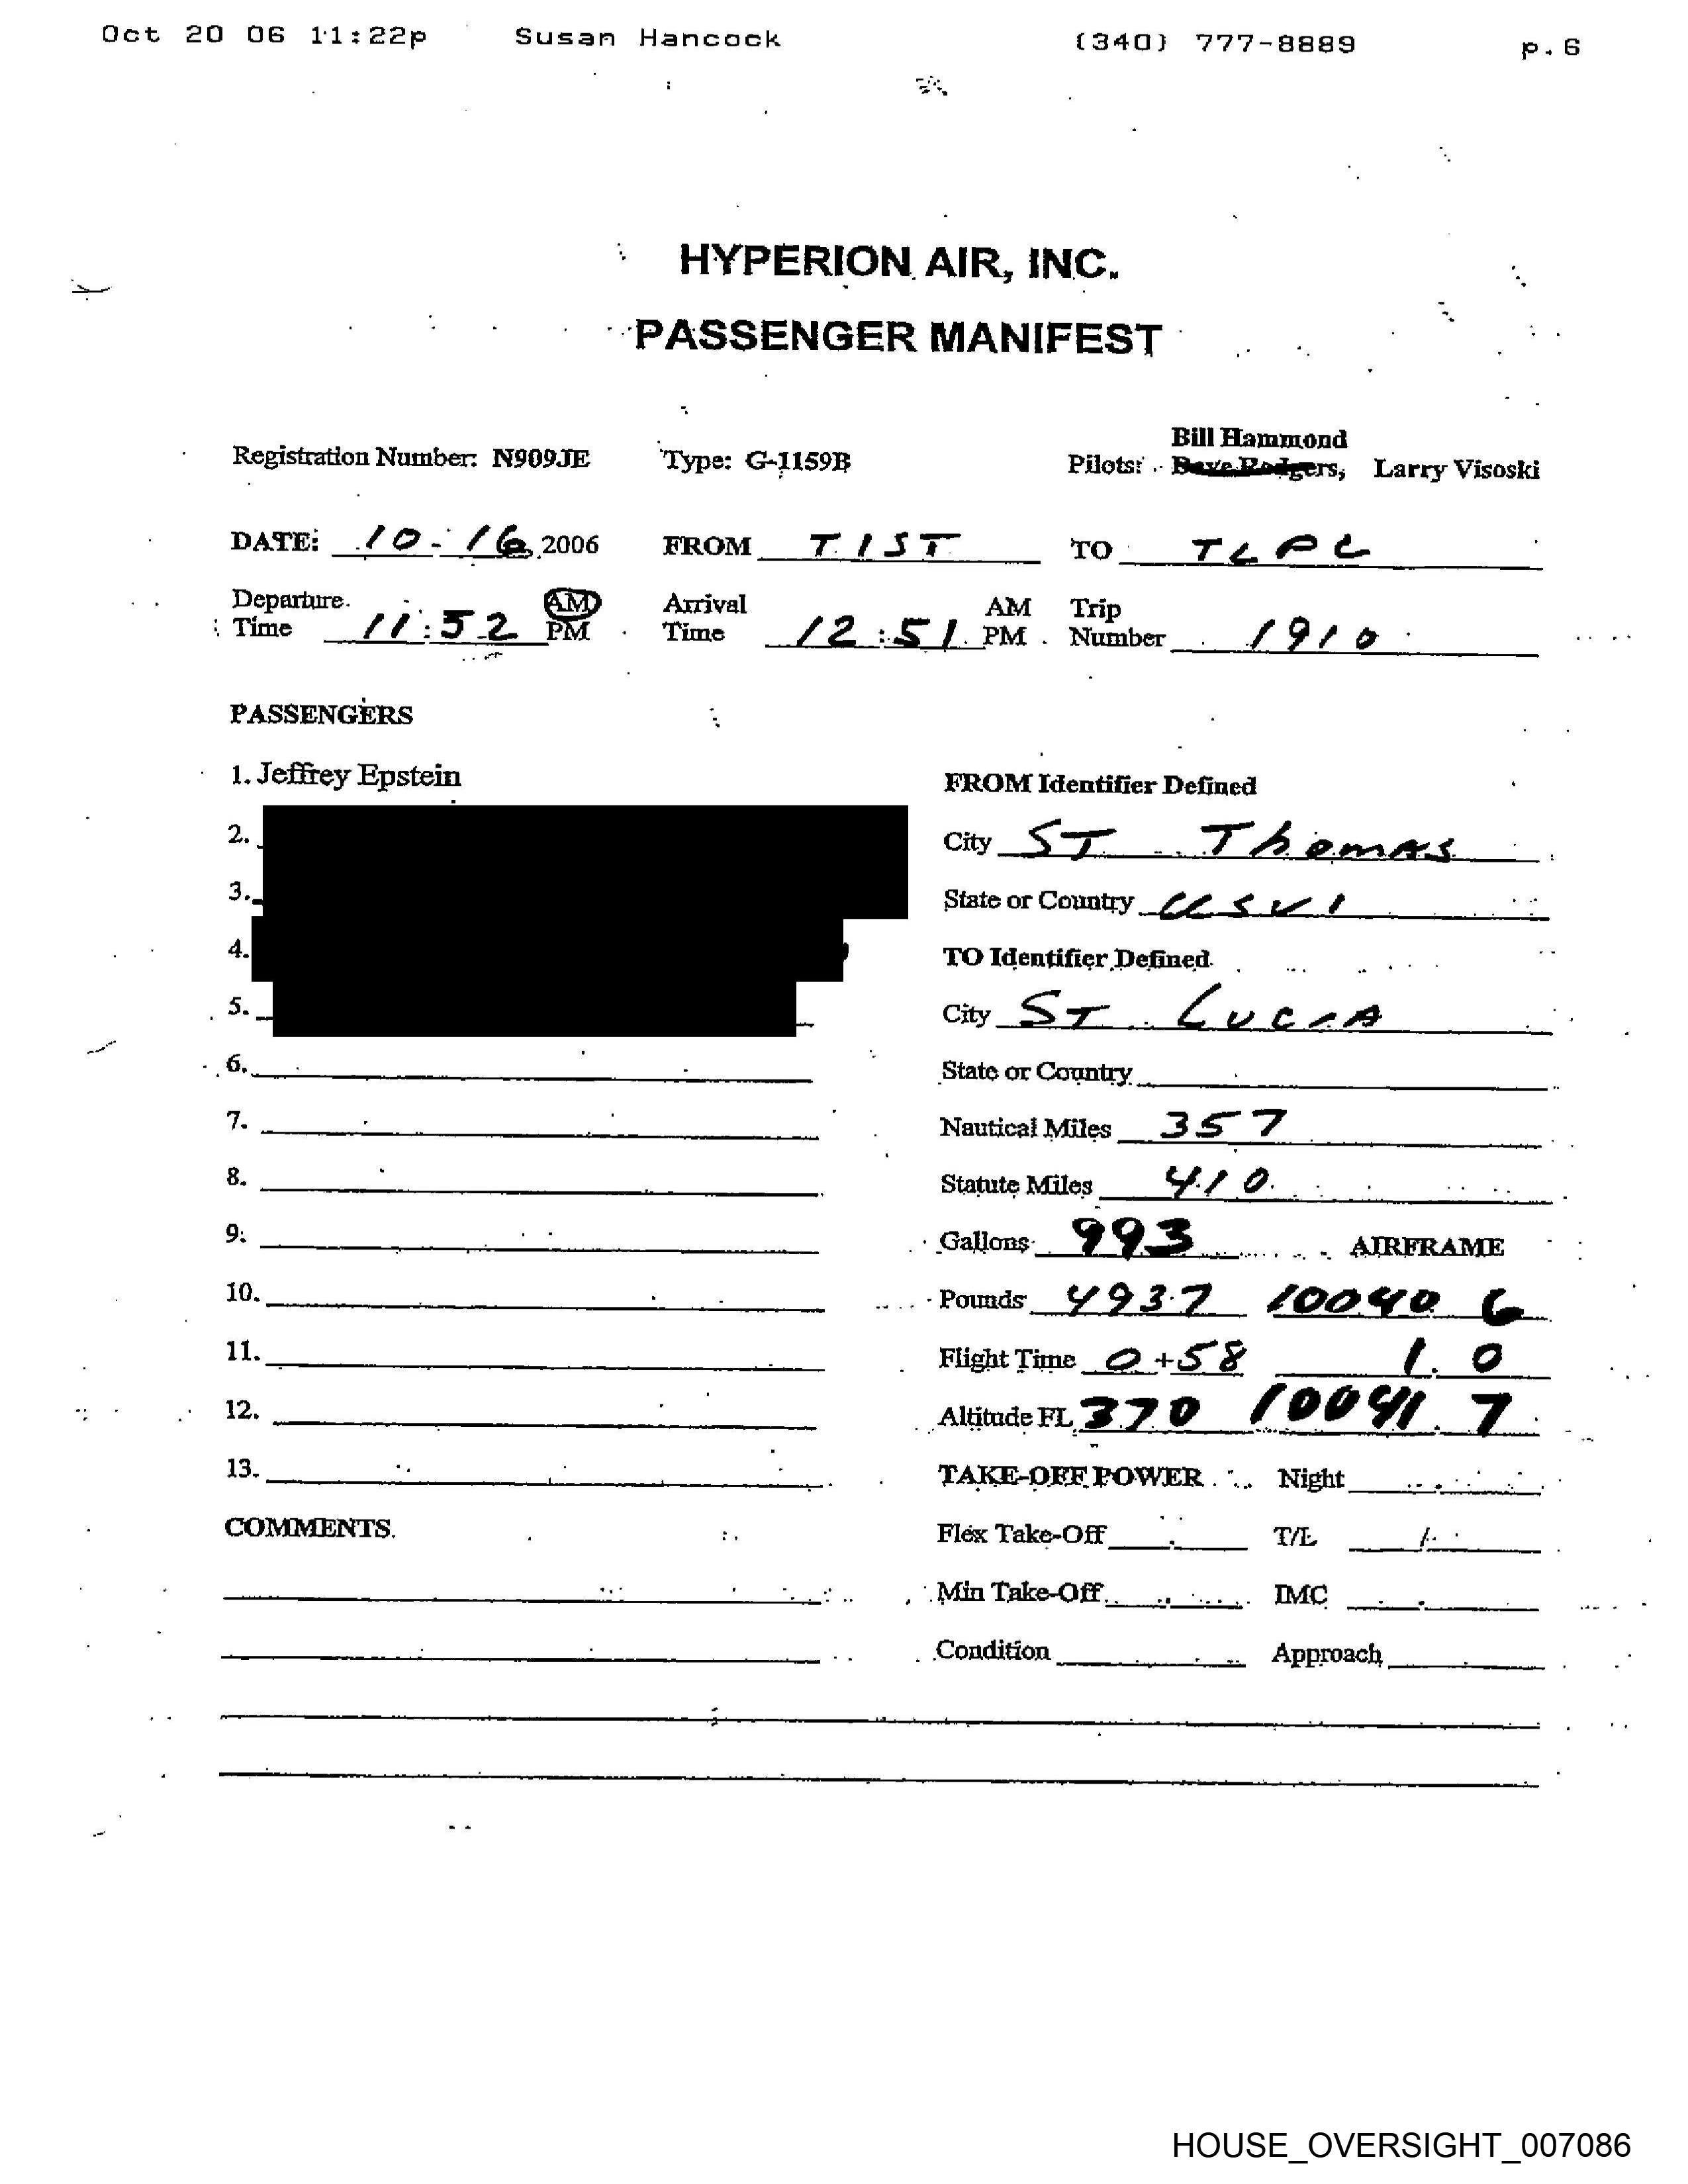 Oct 20 06 11:22p Susan Hancock (340) 777-8889 p.6
HYPERION AIR, INC.
PASSENGER MANIFEST
Bill Hammond
Registration Number: N909JE Type: G-1159B Pilots: Dave Rodgers, Larry Visoski
DATE: 10-16, 2006 FROM TIST TO TLPL
Departure Time 11:52 AM PM Arrival Time 12:51 AM PM Trip Number 1910
PASSENGERS
1. Jeffrey Epstein
FROM Identifier Defined
2.
City ST Thomas
3.
State or Country USVI
4.
TO Identifier Defined
5.
City ST LUCIA
6.
State or Country
7.
Nautical Miles 357
8.
Statute Miles 410
9.
Gallons 993 AIRFRAME
10.
Pounds 4937 10040 6
11.
Flight Time 0+58 1.0
12.
Altitude FL 370 10041.7
13.
TAKE-OFF POWER Night
COMMENTS
Flex Take-Off T/L
Min Take-Off IMC
Condition Approach
HOUSE_OVERSIGHT_007086